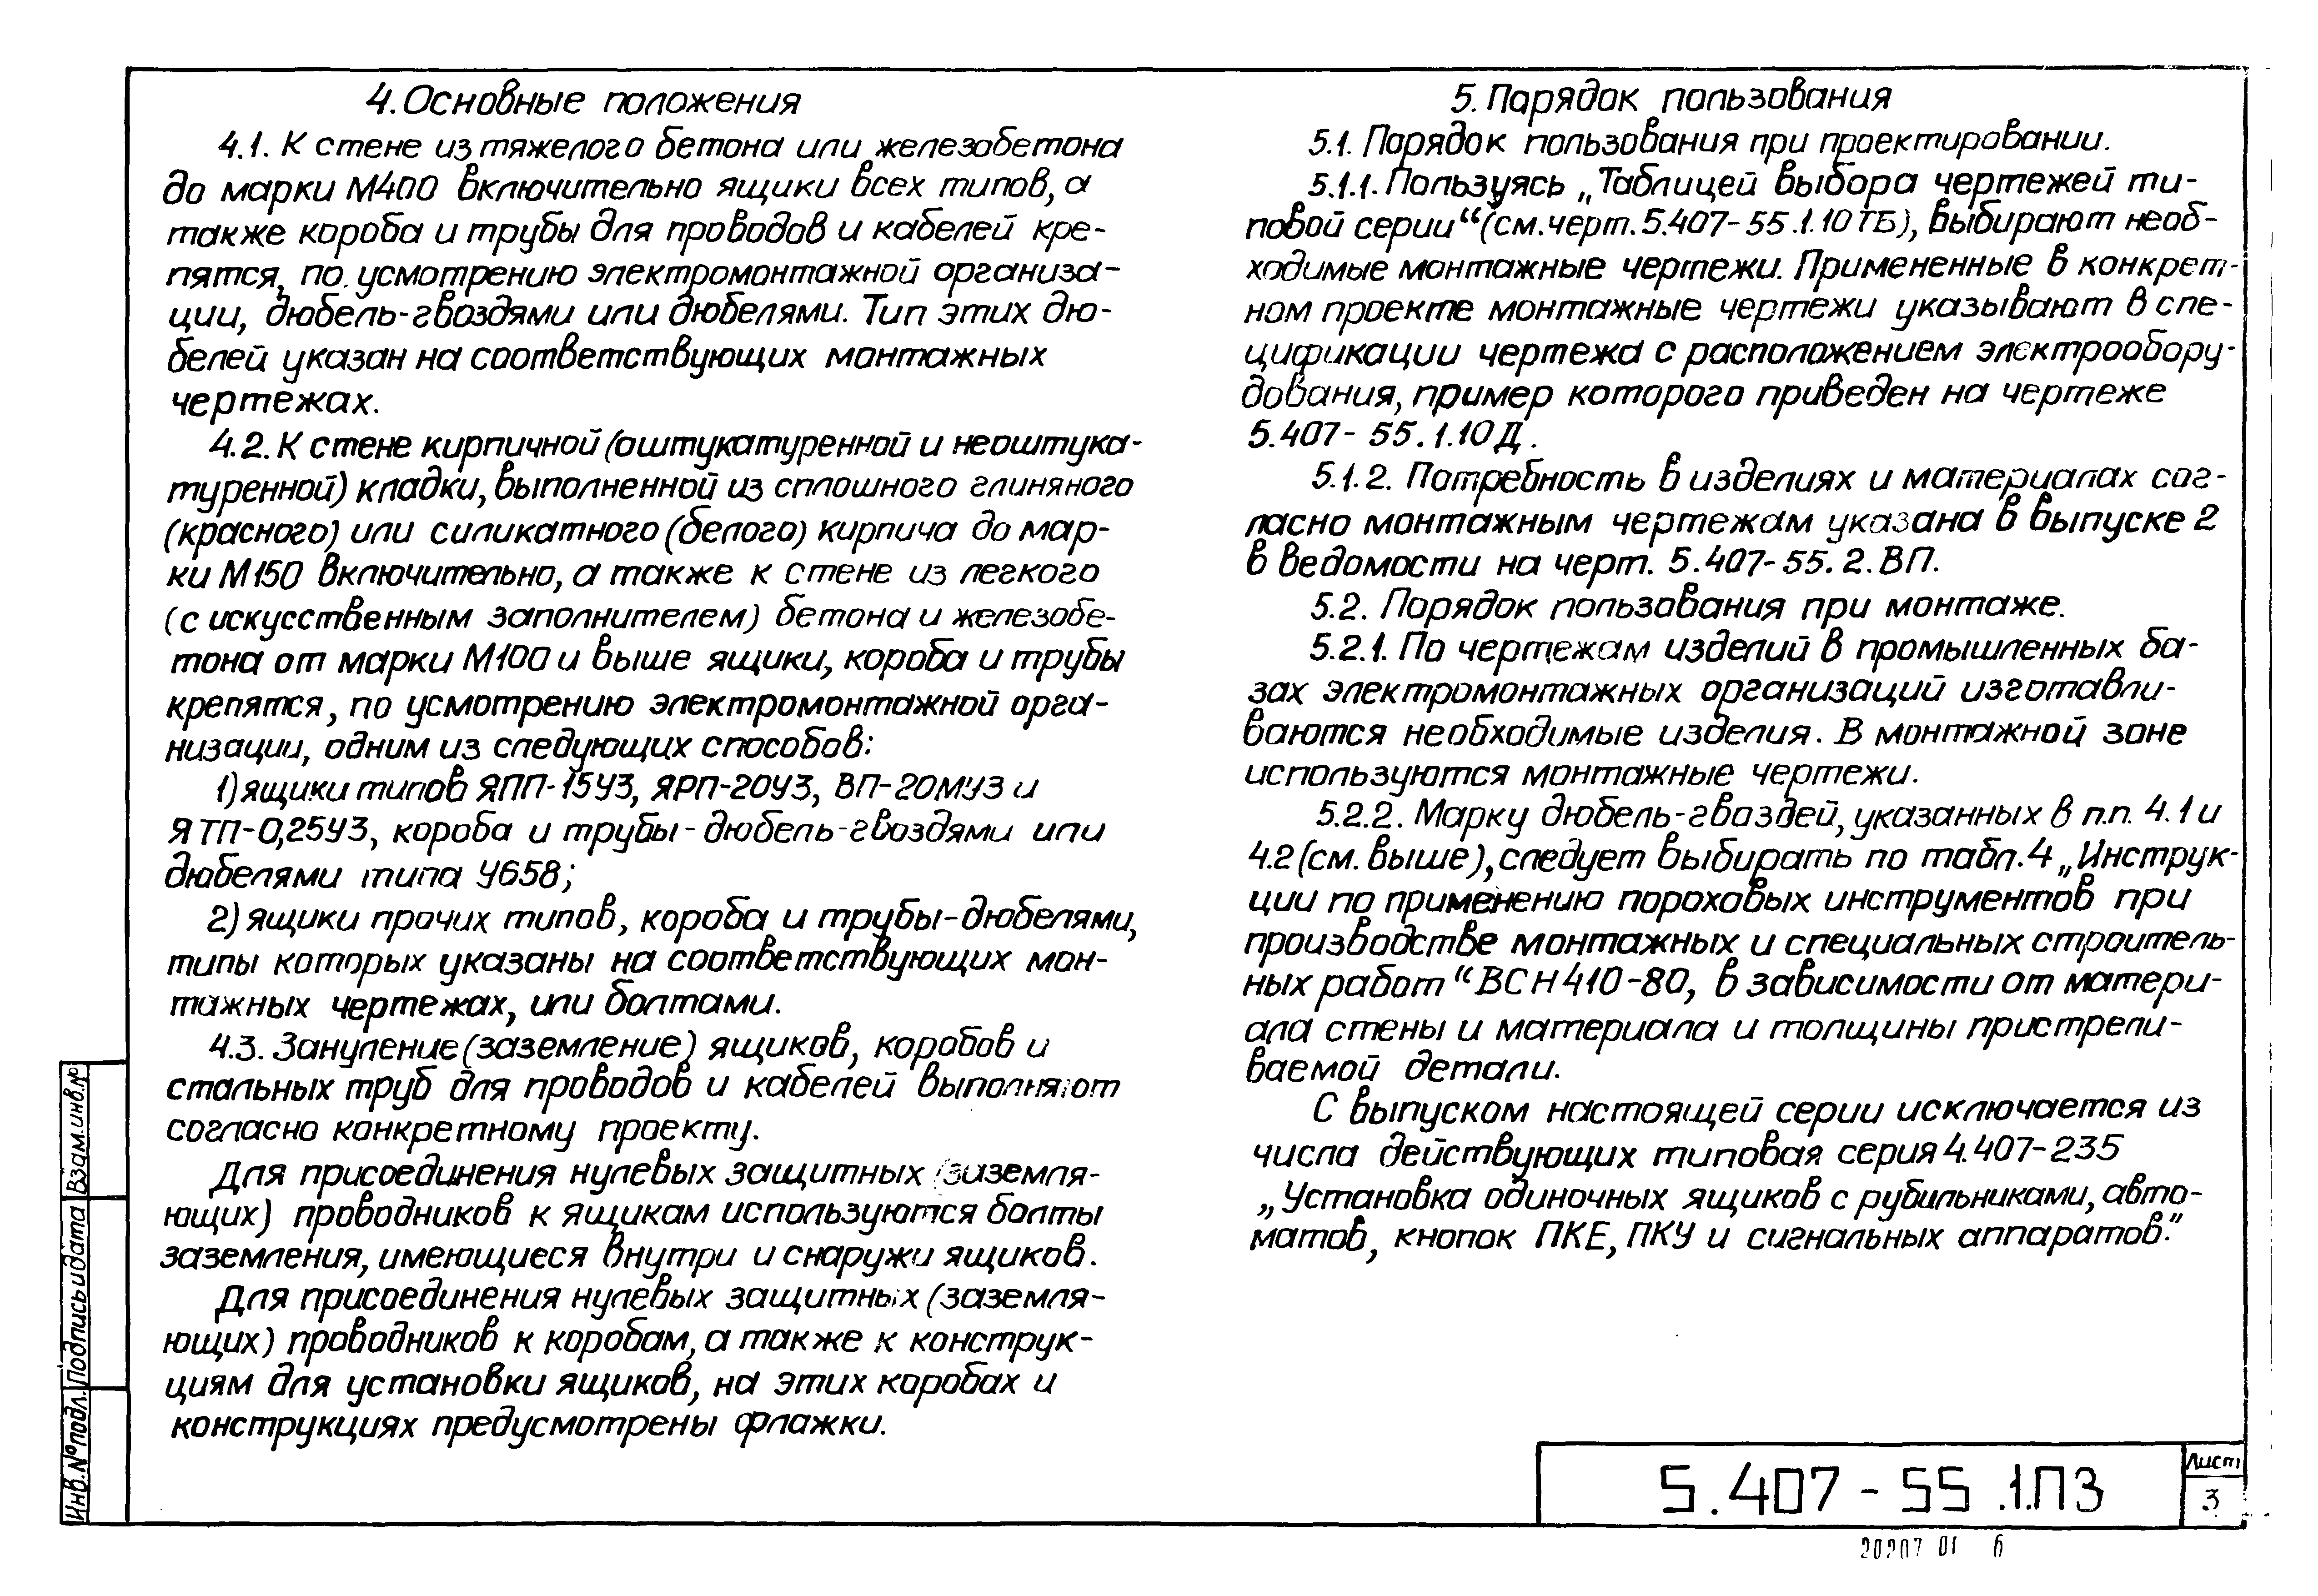 4. Основные положения
4.1. К стене из тяжелого бетона или железобетона
до марки М400 включительно ящики всех типов, а
также короба и трубы для проводов и кабелей кре-
пятся, по усмотрению электромонтажной организа-
ции, дюбель-гвоздями или дюбелями. Тип этих дю-
белей указан на соответствующих монтажных
чертежах.
4.2. К стене кирпичной (оштукатуренной и неоштука-
туренной) кладки, выполненной из сплошного глиняного
(красного) или силикатного (белого) кирпича до мар-
ки М150 включительно, а также к стене из легкого
(с искусственным заполнителем) бетона и железобе-
тона от марки М100 и выше ящики, короба и трубы
крепятся, по усмотрению электромонтажной орга-
низации, одним из следующих способов:
1) ящики типов ЯПП-15У3, ЯРП-20У3, ВП-20МУ3 и
ЯТП-0,25У3, короба и трубы - дюбель-гвоздями или
дюбелями типа У658;
2) ящики прочих типов, короба и трубы - дюбелями,
типы которых указаны на соответствующих мон-
тажных чертежах, или болтами.
4.3. Зануление (заземление) ящиков, коробов и
стальных труб для проводов и кабелей выполняют
согласно конкретному проекту.
Для присоединения нулевых защитных (заземля-
ющих) проводников к ящикам используются болты
заземления, имеющиеся внутри и снаружи ящиков.
Для присоединения нулевых защитных (заземля-
ющих) проводников к коробам, а также к конструк-
циям для установки ящиков, на этих коробах и
конструкциях предусмотрены флажки.
5. Порядок пользования
5.1. Порядок пользования при проектировании.
5.1.1. Пользуясь „Таблицей выбора чертежей ти-
повой серии“ (см. черт. 5.407-55.1.10ТБ), выбирают необ-
ходимые монтажные чертежи. Примененные в конкрет-
ном проекте монтажные чертежи указывают в спе-
цификации чертежа с расположением электрообору-
дования, пример которого приведен на чертеже
5.407-55.1.10Д.
5.1.2. Потребность в изделиях и материалах сог-
ласно монтажным чертежам указана в выпуске 2
в ведомости на черт. 5.407-55.2.ВП.
5.2. Порядок пользования при монтаже.
5.2.1. По чертежам изделий в промышленных ба-
зах электромонтажных организаций изготавли-
ваются необходимые изделия. В монтажной зоне
используются монтажные чертежи.
5.2.2. Марку дюбель-гвоздей, указанных в п.п. 4.1 и
4.2 (см. выше), следует выбирать по табл. 4 „Инструк-
ции по применению пороховых инструментов при
производстве монтажных и специальных строитель-
ных работ“ ВСН 410-80, в зависимости от матери-
ала стены и материала и толщины пристрели-
ваемой детали.
С выпуском настоящей серии исключается из
числа действующих типовая серия 4.407-235
„Установка одиночных ящиков с рубильниками, авто-
матов, кнопок ПКЕ, ПКУ и сигнальных аппаратов."
Взам.инв.№
Подпись и дата
Инв.№ подл.
5.407-55.1.ПЗ
Лист
3
20207 01 6